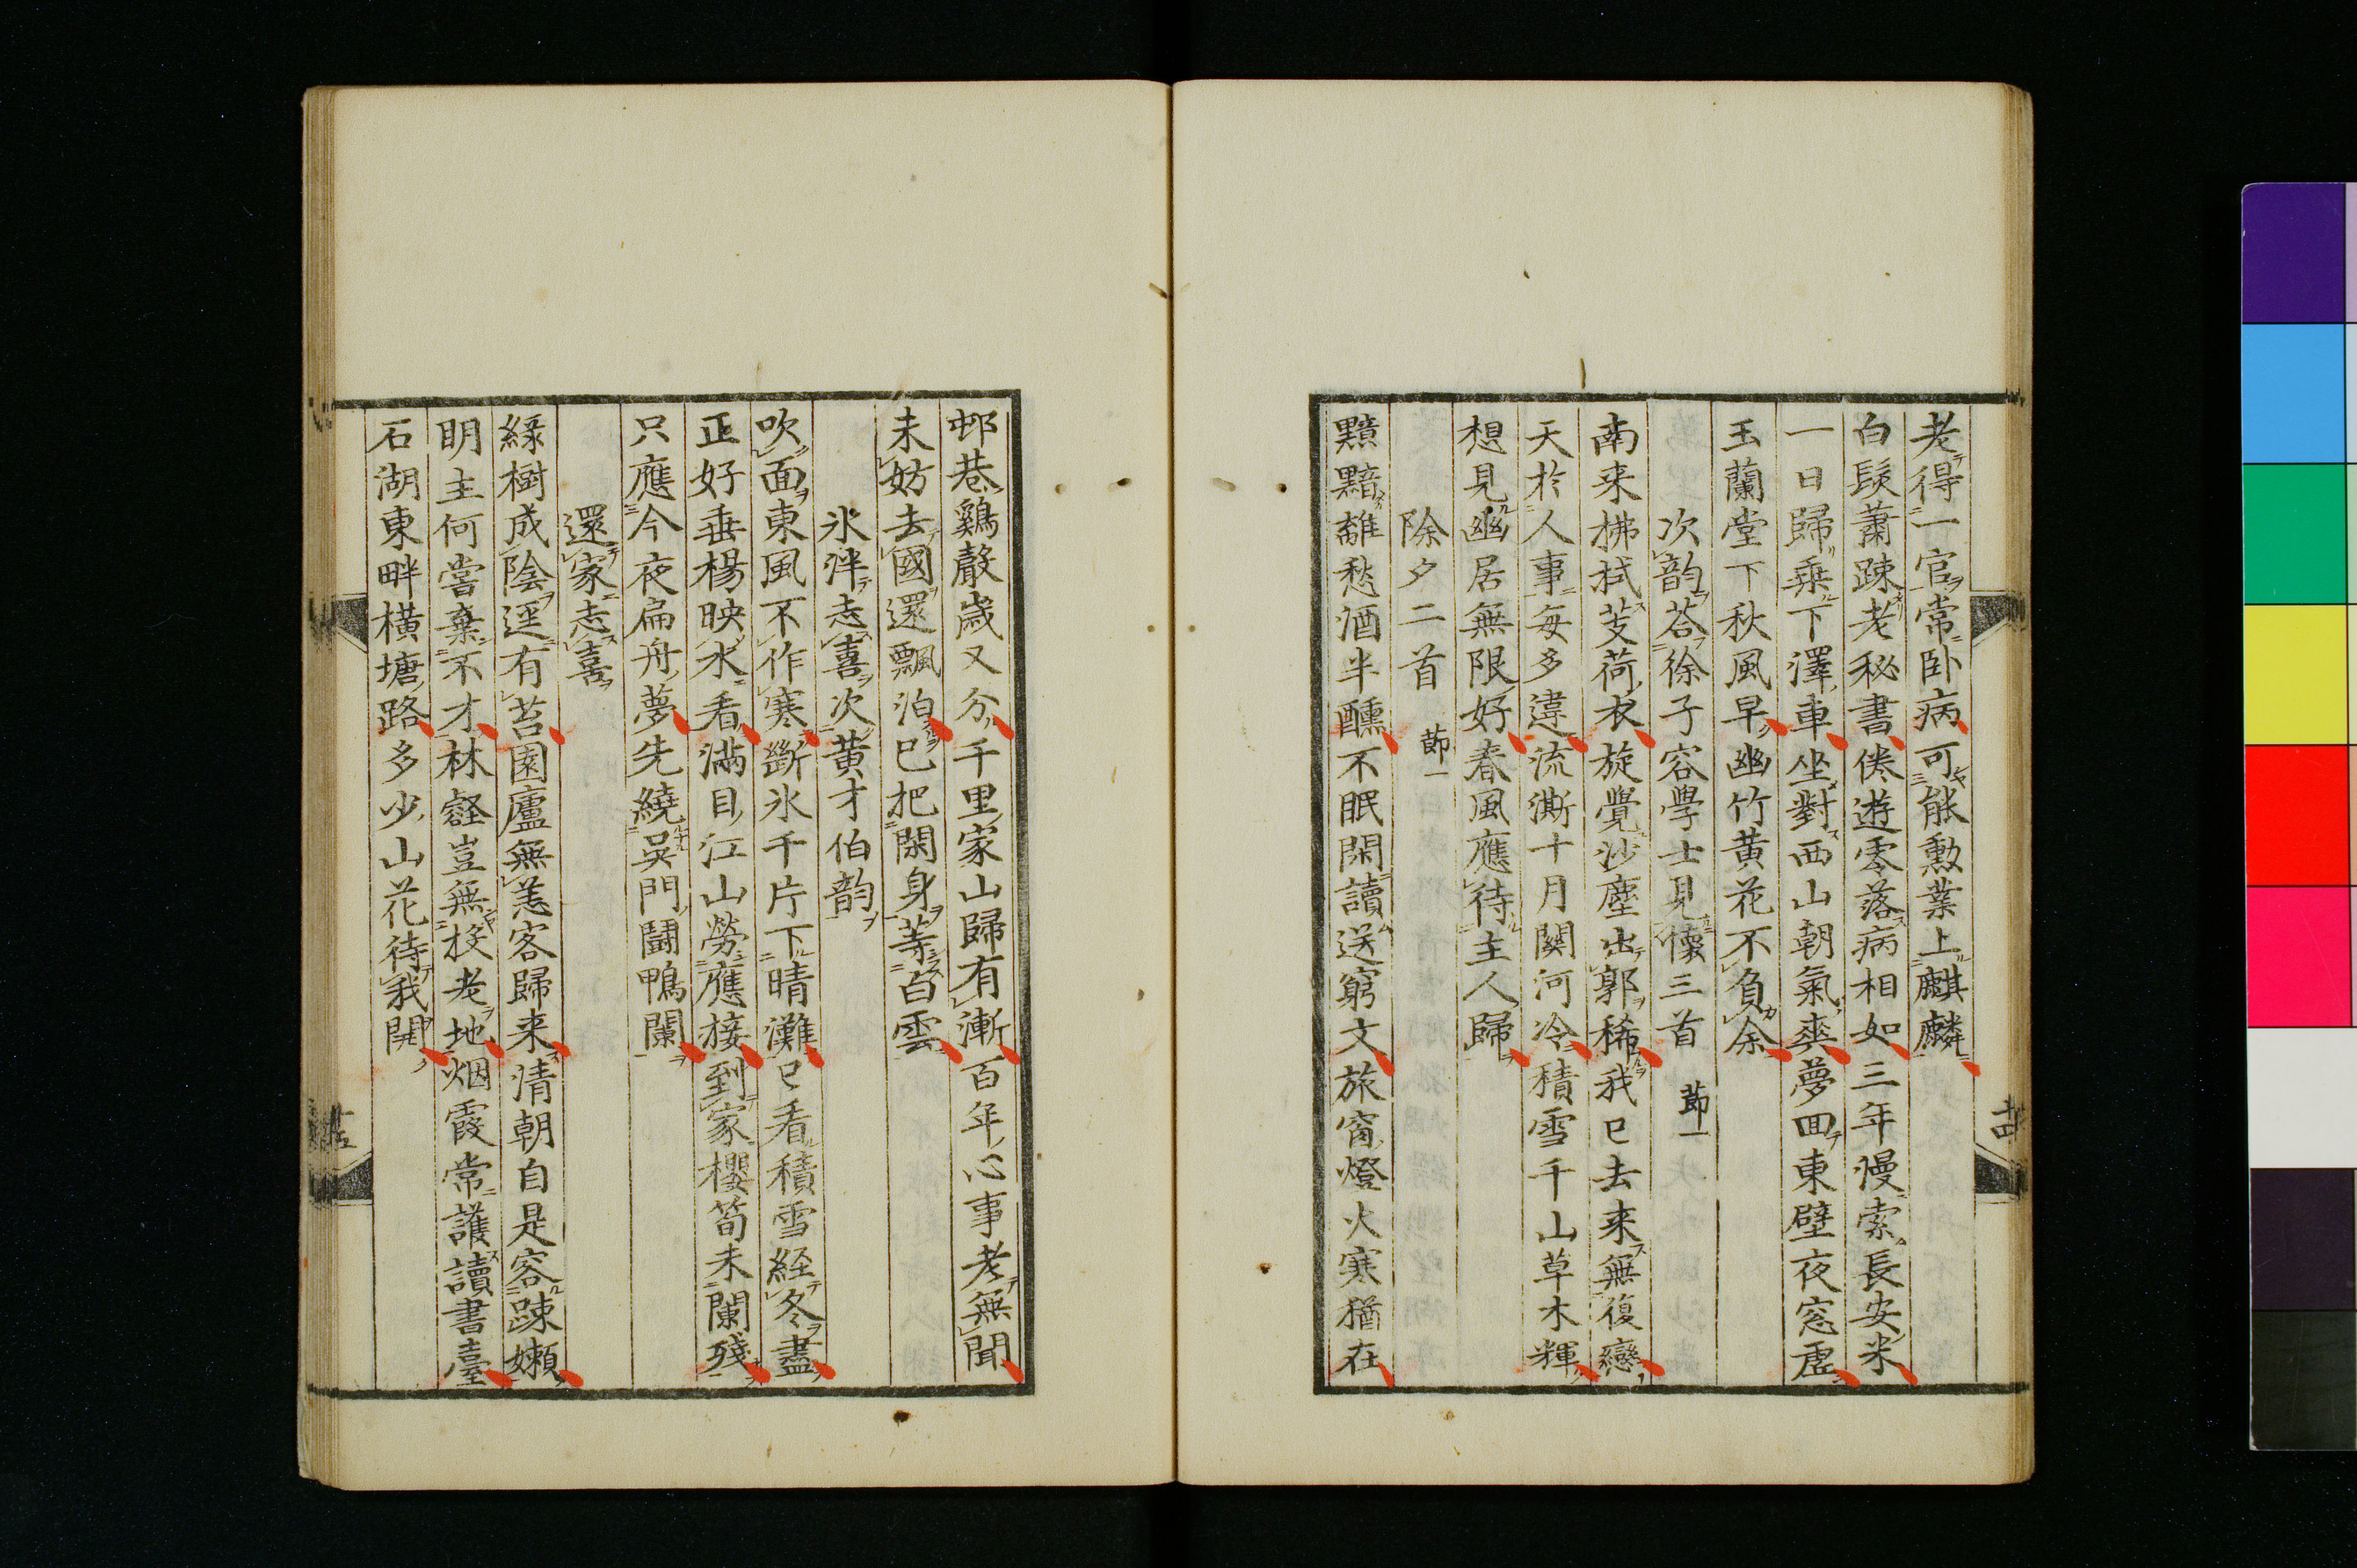 老得一官常卧病可能勲業上麒麟
白髮蕭踈老秘書倦遊零落病相如三年慢索長安米
一日歸乗下澤車坐對西山朝氣爽夢回東壁夜窓虚
玉蘭堂下秋風早幽竹黄花不負余
次韵荅徐子容學士見懐三首 莭一
南来拂拭芰荷衣旋覺沙塵出郭稀我已去来無復戀
天於人事毎多違流澌十月関河冷積雪千山草木輝
想見幽居無限好春風應待主人歸
除夕二首 莭一
黯黯離愁酒半醺不眠閑讀送窮文旅窗燈火寒猶在
邨巷鷄聲歳又分千里家山歸有漸百年心事老無聞
未妨去國還飄泊已把閑身等白雲
氷泮志喜次黄才伯韵
吹面東風不作寒斷氷千片下晴灘已看積雪経冬盡
正好垂楊映水看満目江山勞應接到家櫻筍未闌殘
只應今夜扁舟夢先繞吳門鬪鴨闌
還家志喜
緑樹成陰逕有苔園廬無恙客歸来清朝自是容踈嬾
明主何嘗棄不才林壑豈無投老地烟霞常護讀書臺
石湖東畔横塘路多少山花待我開